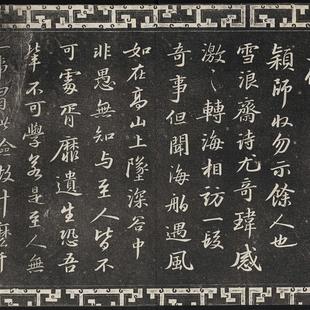 穎師收勿示餘人也
雪浪齋詩尤奇瑋感
激〻轉海相訪一段
奇事但聞海舶遇風
如在高山上墜深谷中
非愚無知與至人皆不
可處胥靡遺生恐吾
輩不可學若是至人無
事冒此險做什麼千